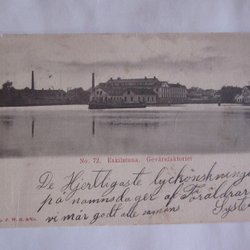 No. 72. Eskilstuna, Gevärsfaktoriet
De Hjertligaste lyckönskninga
på namnsdagen af Föräldrar
vi mår godt alla
Syste